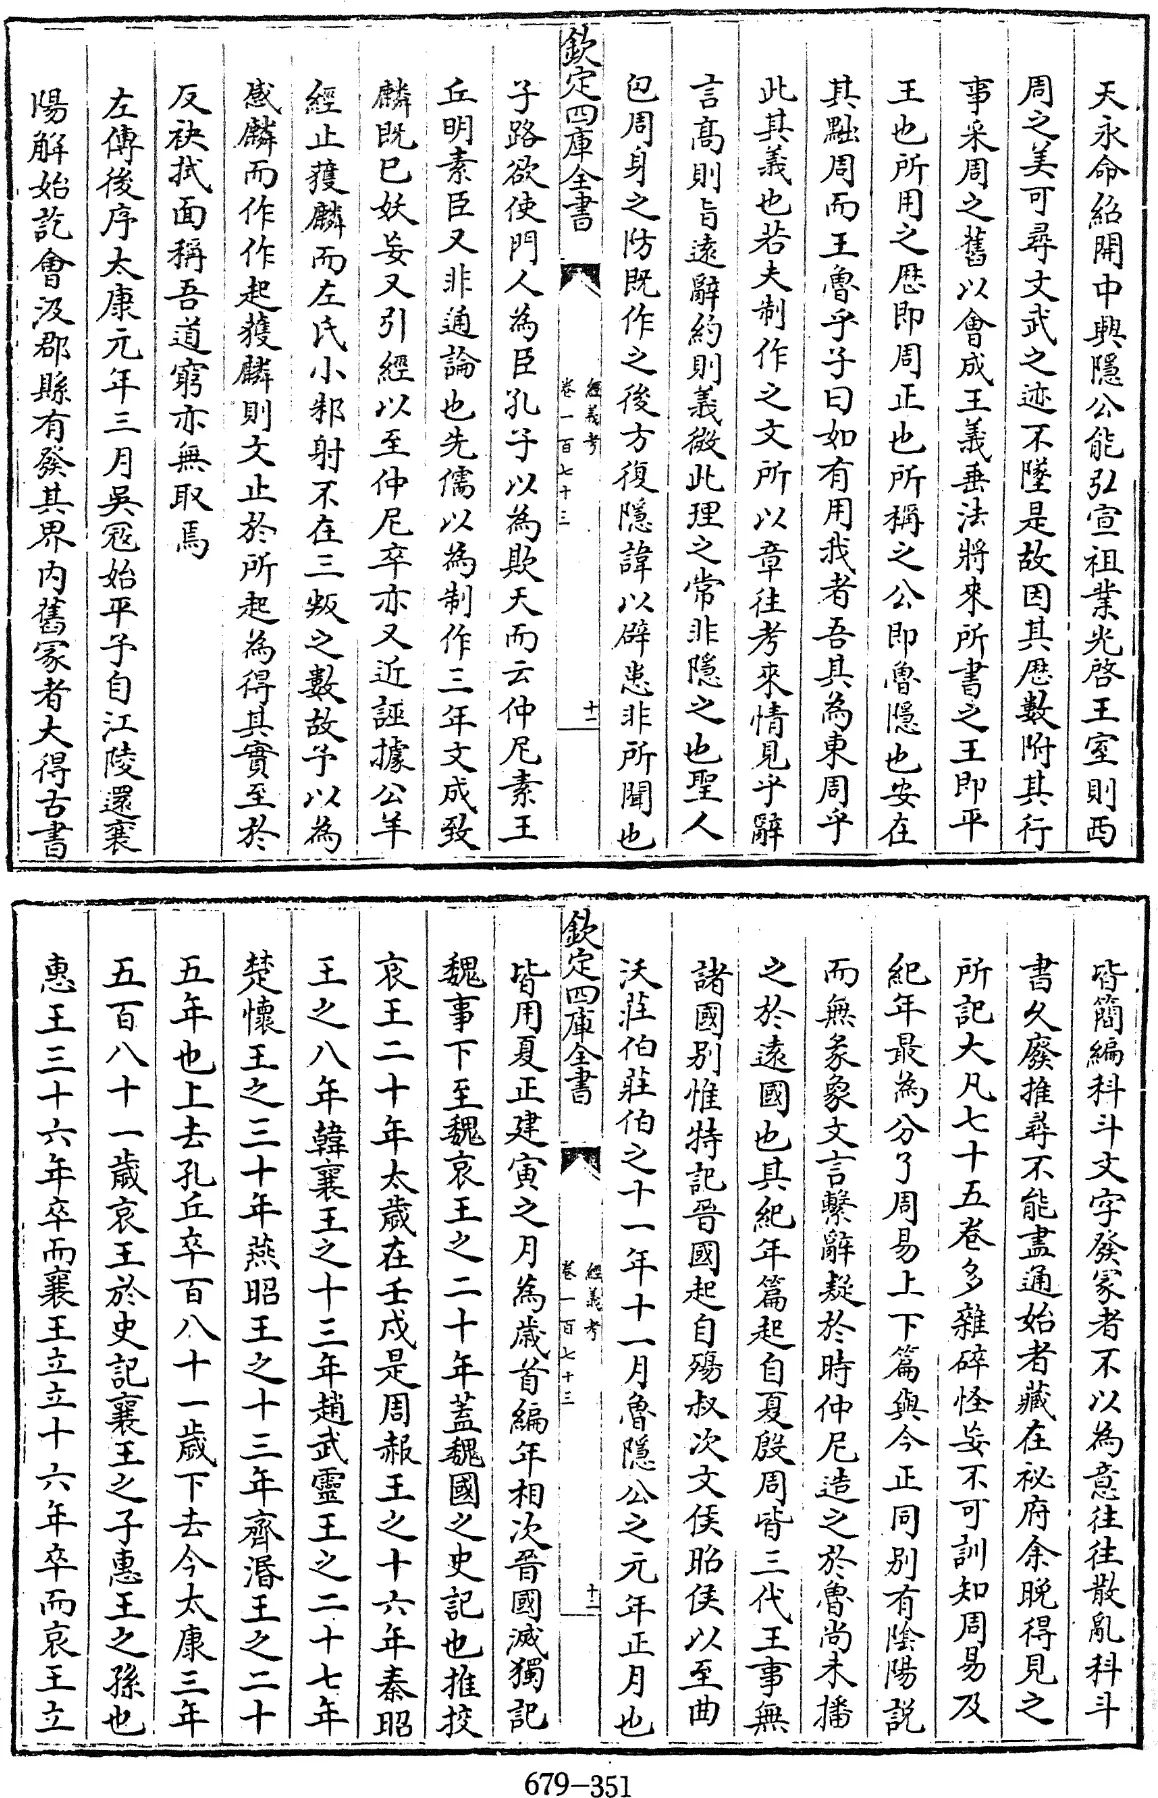 天永命紹開中興隱公能弘宣祖業光啓王室則西
周之美可尋文武之迹不墜是故因其歴數附其行
事采周之舊以會成王義垂法將來所書之王即平
王也所用之歴即周正也所稱之公即魯隱也安在
其黜周而王魯乎子曰如有用我者吾其為東周乎
此其義也若夫制作之文所以章往考來情見乎辭
言髙則旨遠辭約則義微此理之常非隱之也聖人
包周身之防既作之後方復隱諱以辟患非所聞也
欽定四庫全書
經義考
卷一百七十三
十一
子路欲使門人為臣孔子以為欺天而云仲尼素王
丘明素臣又非通論也先儒以為制作三年文成致
麟既已妖妄又引經以至仲尼卒亦又近誣據公羊
經止獲麟而左氏小邾射不在三叛之數故予以為
感麟而作作起獲麟則文止於所起為得其實至於
反袂拭面稱吾道窮亦無取焉
左傳後序太康元年三月吳冦始平予自江陵還襄
陽解始訖會汲郡縣有發其界内舊冢者大得古書
皆簡編科斗文字發冢者不以為意往往散亂科斗
書久廢推尋不能盡通始者藏在祕府余晚得見之
所記大凡七十五卷多雜碎怪妄不可訓知周易及
紀年最為分了周易上下篇與今正同别有陰陽説
而無彖象文言繫辭疑於時仲尼造之於魯尚未播
之於逺國也其紀年篇起自夏殷周皆三代王事無
諸國别惟特記晉國起自殤叔次文侯昭侯以至曲
沃莊伯莊伯之十一年十一月魯隱公之元年正月也
欽定四庫全書
經義考
卷一百七十三
十二
皆用夏正建寅之月為歳首編年相次晉國滅獨記
魏事下至魏哀王之二十年蓋魏國之史記也推挍
哀王二十年太歳在壬戌是周赧王之十六年秦昭
王之八年韓襄王之十三年趙武靈王之二十七年
楚懷王之三十年燕昭王之十三年齊湣王之二十
五年也上去孔丘卒百八十一歳下去今太康三年
五百八十一歳哀王於史記襄王之子惠王之孫也
惠王三十六年卒而襄王立立十六年卒而哀王立
679-351